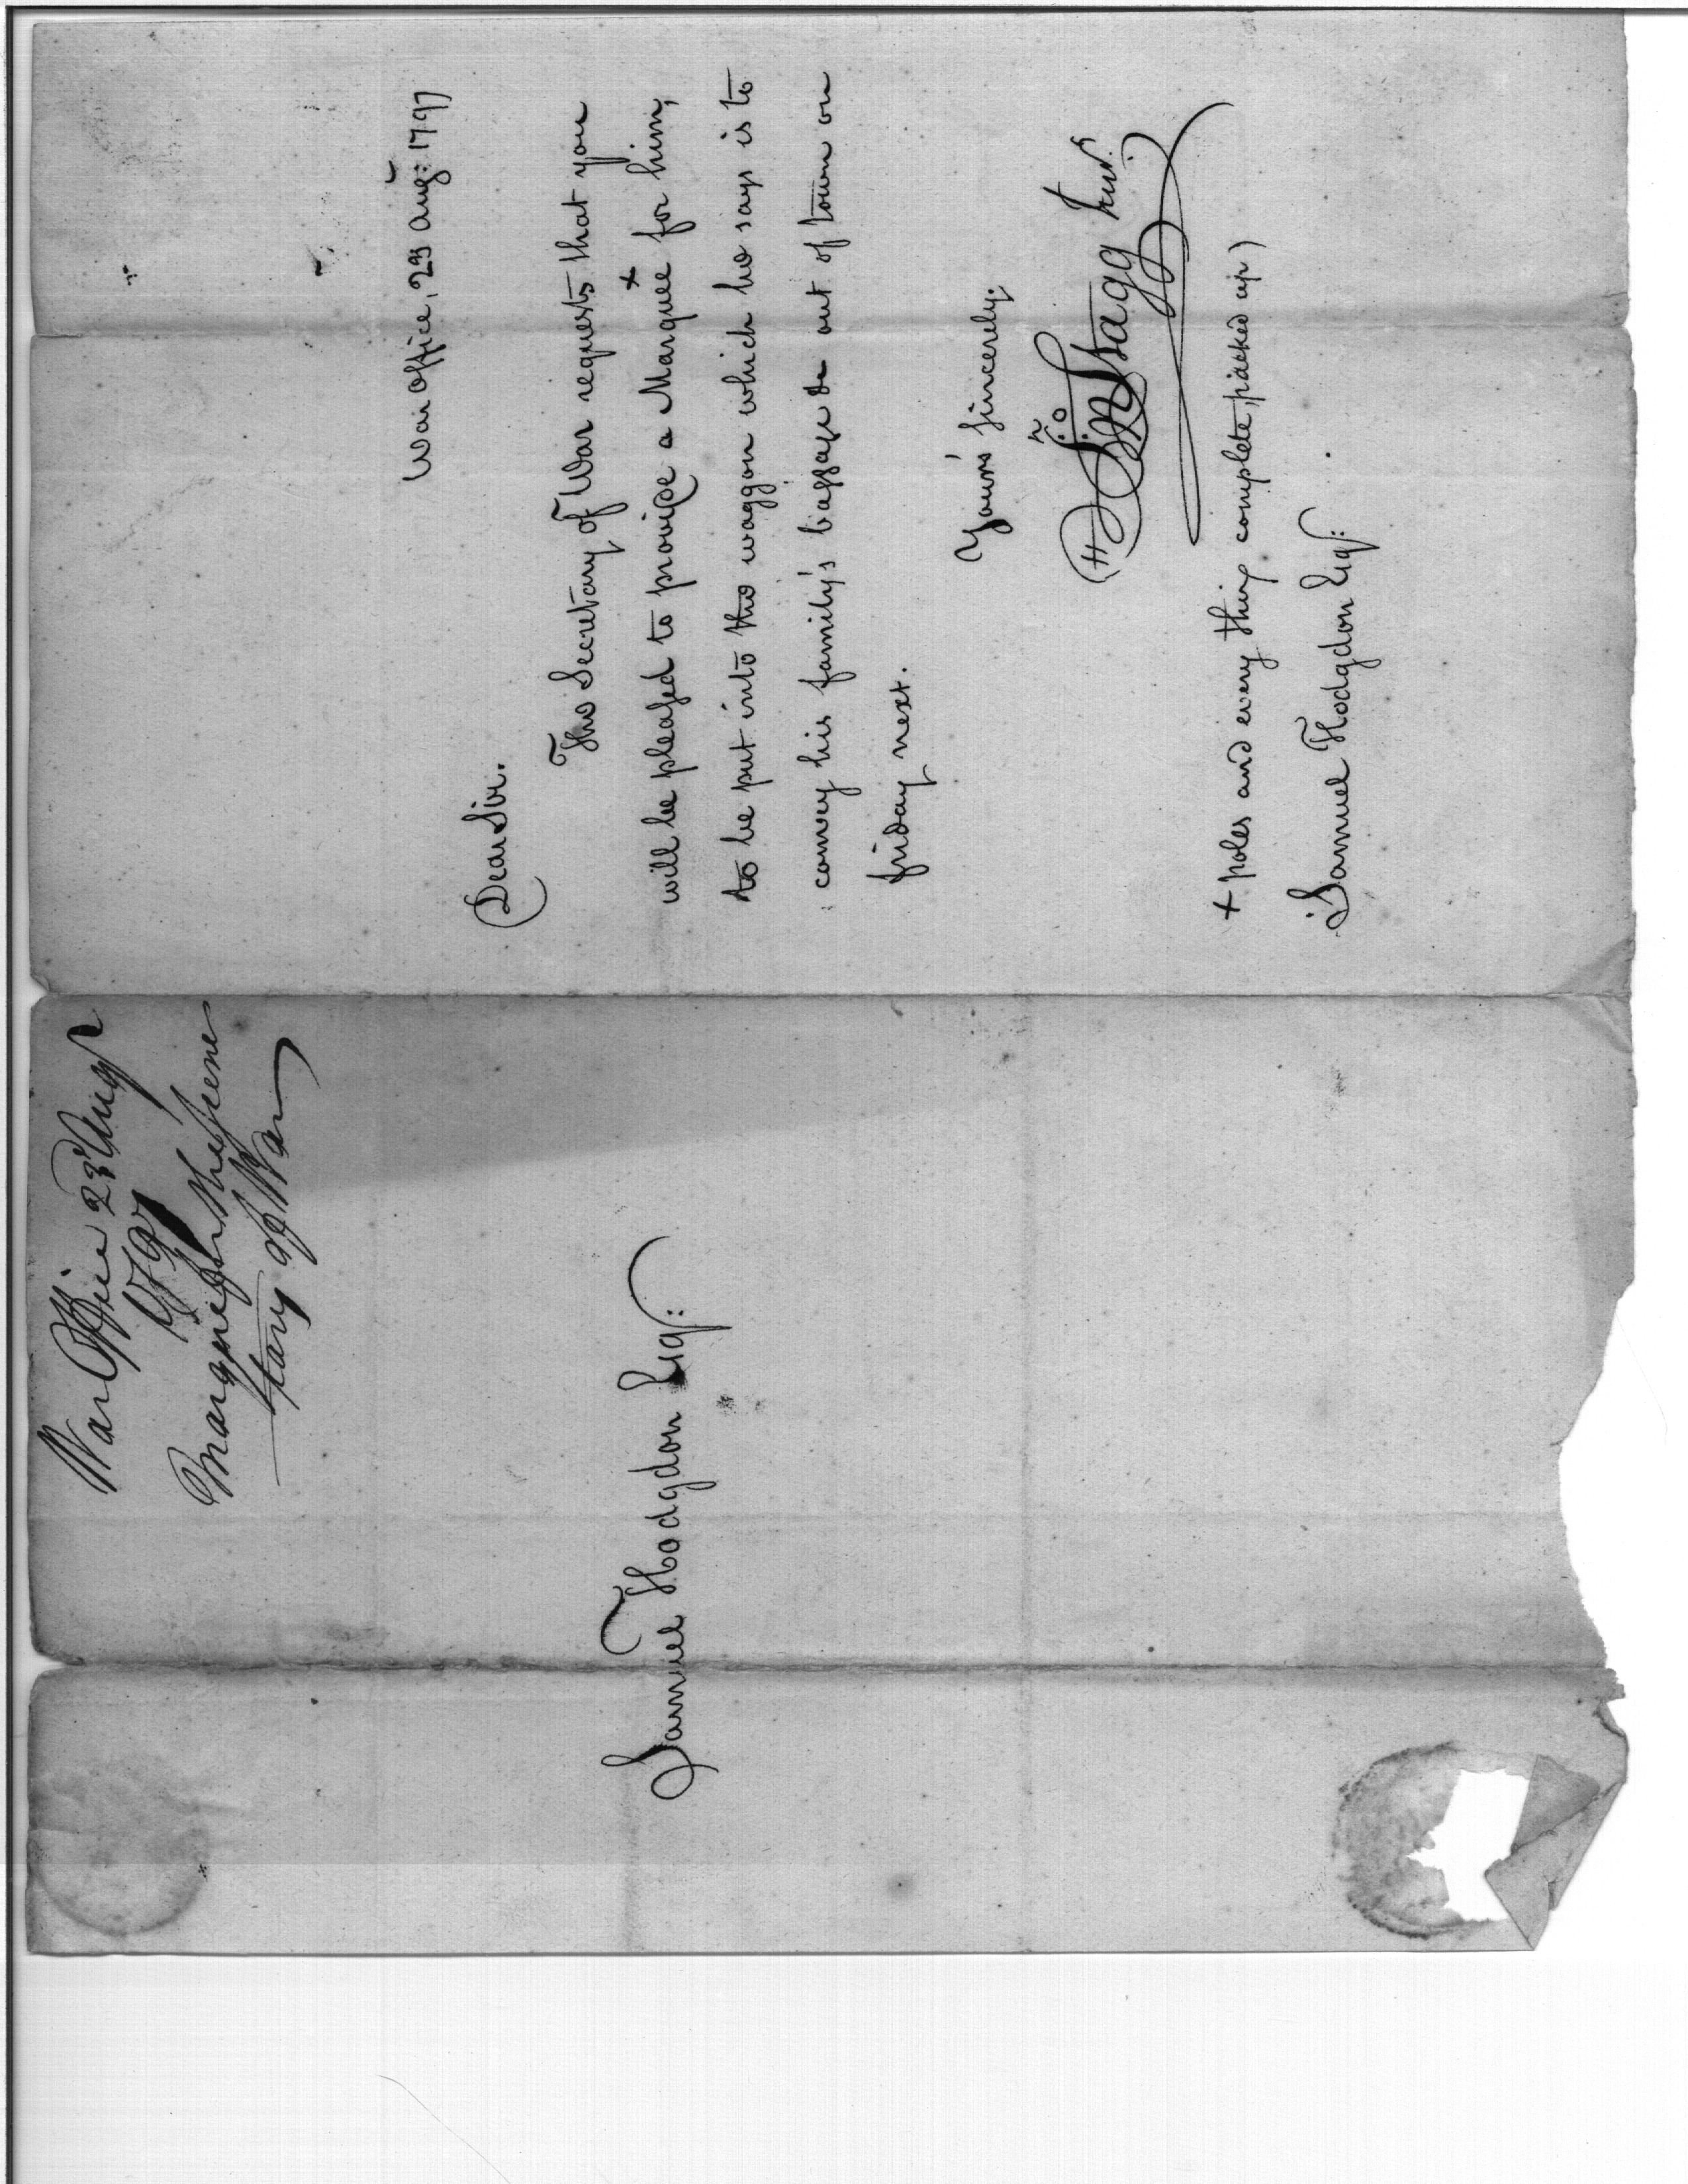 War Office, 23 Aug: 1797
Dear Sir.
The Secretary of War requests that you
will be pleased to provide a Marquee + for him,
to be put into the waggon which he says is to
convey his family's baggage &c out of town on
friday next.
Your's sincerely.
Jno Stagg Junr.
+ poles and every thing complete, packed up)
Samuel Hodgdon Esq:
War Office 23d Augt
1797
Marquee for the Secre
tary of War
Samuel Hodgdon Esq: